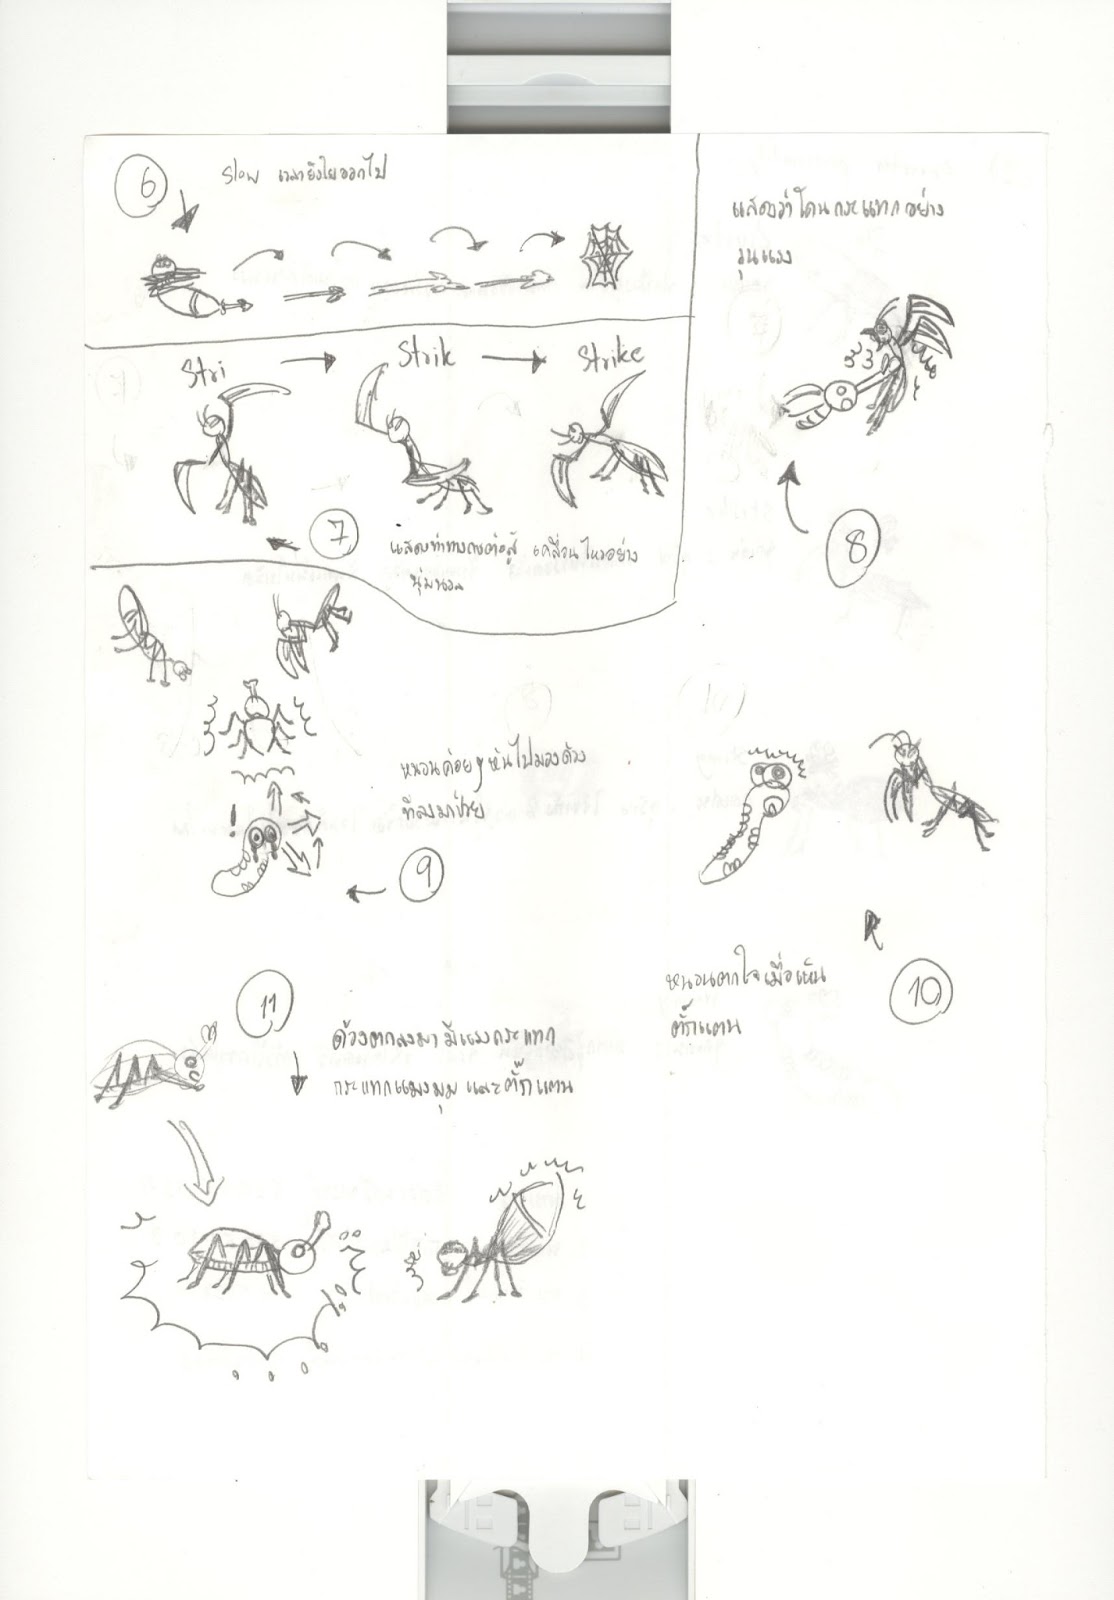 6
slow เวลายิงใยออกไป
Stri
Strik
Strike
7
แสดงท่าทางการต่อสู้ เคลื่อนไหวอย่าง
นุ่มนวล
แสดงว่าโดนกระแทกอย่าง
รุนแรง
8
หนอนค่อยๆหันไปมองด้วง
ที่ลงมาช่วย
!
9
หนอนตกใจเมื่อเห็น
ตั๊กแตน
10
11
ด้วงตกลงมา มีแรงกระแทก
กระแทกแมงมุม และตั๊กแตน